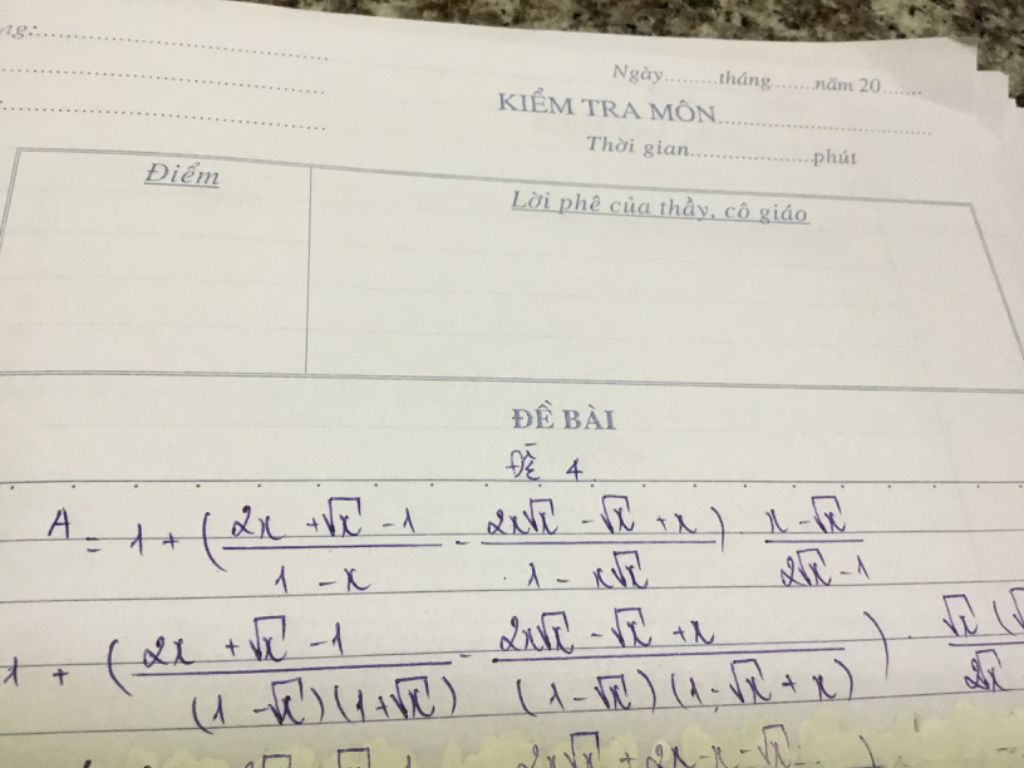 Ngày.........tháng.......năm 20.......
KIỂM TRA MÔN
Thời gian.....................phút
Điểm
Lời phê của thầy, cô giáo
ĐỀ BÀI
Đề 4
A = 1 + ( (2x + √x - 1)/(1 - x) - (2x√x - √x + x)/(1 - x√x) ) . (x - √x)/(2√x - 1)
1 + ( (2x + √x - 1)/((1 - √x)(1 + √x)) - (2x√x - √x + x)/((1 - √x)(1 - √x + x)) ) . √x (√/2√x
2x√x + 2x - x - √x